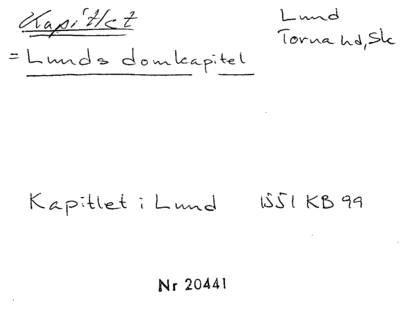 Kapitlet
Lund
Torna hd, Sk
= Lunds domkapitel
Kapitlet i Lund 1551 KB 99
Nr 20441